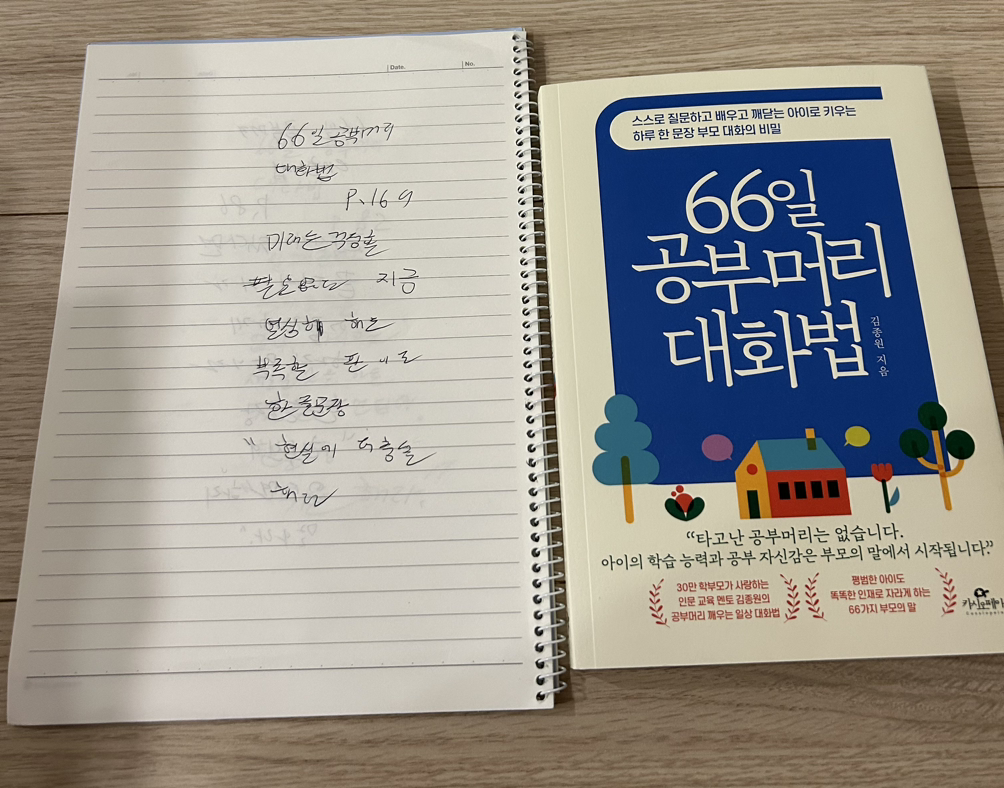 Date.
No.
66일 공부머리
대화법
P.169
미래는 걱정할
필요없다 지금
열심히 해도
부족할 판이다
한 줄 문장
" 현실에 더 충실
해라
스스로 질문하고 배우고 깨닫는 아이로 키우는
하루 한 문장 부모 대화의 비밀
66일
공부머리
대화법
김종원 지음
“타고난 공부머리는 없습니다.
아이의 학습 능력과 공부 자신감은 부모의 말에서 시작됩니다.”
30만 학부모가 사랑하는
인문 교육 멘토 김종원의
공부머리 깨우는 일상 대화법
평범한 아이도
똑똑한 인재로 자라게 하는
66가지 부모의 말
카시오페아